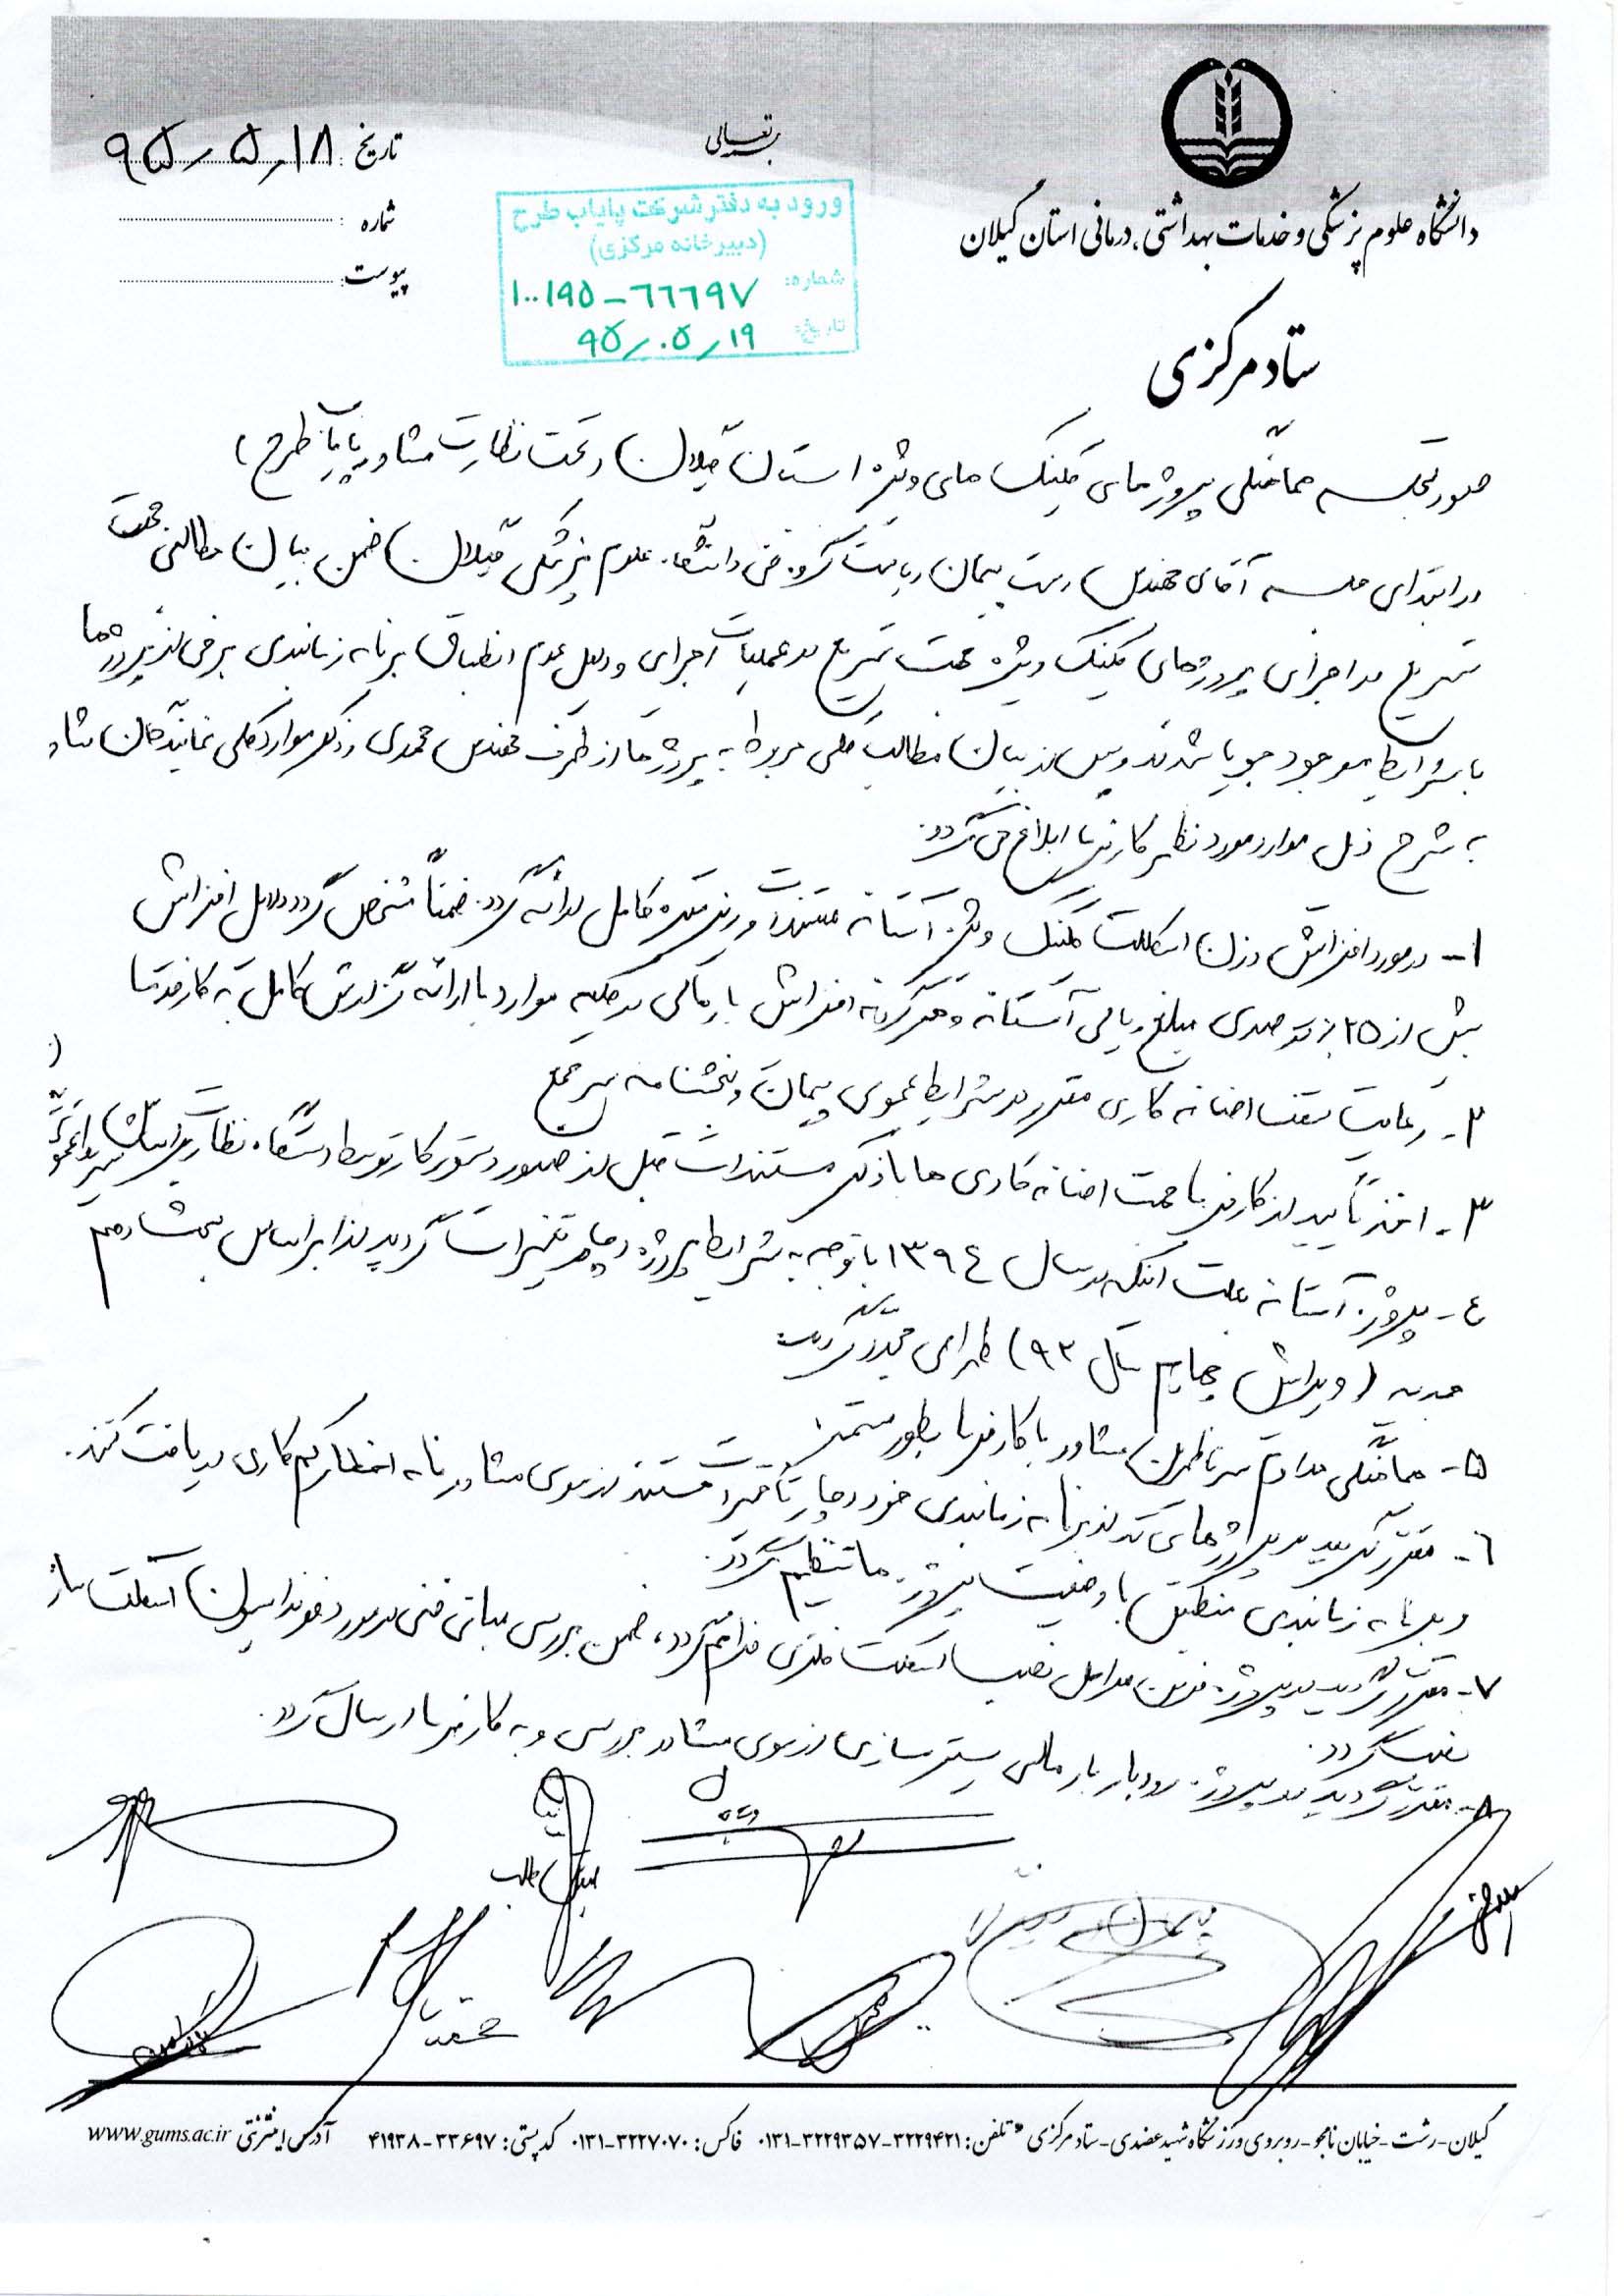 بسمه تعالی
دانشگاه علوم پزشکی و خدمات بهداشتی، درمانی استان گیلان
ستاد مرکزی
تاریخ : ۹۵/۵/۱۸
شماره :
پیوست:
ورود به دفتر شرکت پایاب طرح
(دبیرخانه مرکزی)
شماره: ۱۰۰۱۹۵-۶۶۶۹۷
تاریخ: ۹۵/۰۵/۱۹
صورتجلسه هماهنگی پروژه های کلینیک های ویژه استان گیلان (تحت نظارت مشاور پایاب طرح)
در ابتدای جلسه آقای مهندس پیمان ریاست گروه فنی دانشگاه علوم پزشکی گیلان ضمن بیان مطالبی جهت
تسریع در اجرای پروژه های کلینیک ویژه جهت تسریع در عملیات اجرای و دلیل عدم انطباق برنامه زمانبندی برخی از پروژه ها
با شرایط موجود جویا شدند و پس از بیان مطالب کلی مربوط به پروژه ها از طرف مهندس محمدی و ذکر موارد کلی نمایندگان مشاور
به شرح ذیل موارد مورد نظر کارفرما ابلاغ می گردد:
۱- در مورد افزایش وزن اسکلت کلینیک ویژه آستانه مستندات و ریز متره کامل ارائه گردد. ضمناً مشخص گردد دلایل افزایش
بیش از ۲۵ درصدی مبلغ ریالی آستانه و هرگونه افزایش بار مالی در کلیه موارد با ارائه گزارش کامل به کارفرما
۲- رعایت سقف اضافه کاری مقرر در شرایط عمومی پیمان و بخشنامه سرجمع
۳- اخذ تأیید از کارفرما جهت اضافه کاری ها با ذکر مستندات قبل از صدور دستور کار توسط دستگاه نظارت
۴- پروژه آستانه بعلت اینکه در سال ۱۳۹۴ با توجه به شرایط پروژه دچار تغییرات گردید لذا بر اساس مبحث دهم
جدید (ویرایش چهارم سال ۹۲) طراحی مجدد گردیده
۵- هماهنگی مداوم سرناظران مشاور با کارفرما بطور مستمر
۶- مقرر گردید در پروژه های که از برنامه زمانبندی خود دچار تأخیرات هستند از سوی مشاور نامه اخطار کم کاری دریافت کنند.
و برنامه زمانبندی منطبق با وضعیت پروژه ها تنظیم گردد.
۷- مقرر گردید در پروژه مراحل نصب اسکلت فلزی فراهم گردد، ضمن بررسی مبانی فنی در مورد فونداسیون اسکلت
نصب گردد.
۸- مقرر گردید در پروژه رودبار بار مالی بسترسازی از سوی مشاور بررسی و به کارفرما ارسال گردد.
گیلان-رشت-خیابان نامجو-روبروی ورزشگاه شهید عضدی-ستاد مرکزی * تلفن: ۳۲۲۹۴۲۱-۳۲۲۹۳۵۷-۰۱۳۱ فاکس: ۳۲۲۷۰۷۰-۰۱۳۱ کد پستی: ۳۳۶۹۷-۴۱۹۳۸ آدرس اینترنتی www.gums.ac.ir